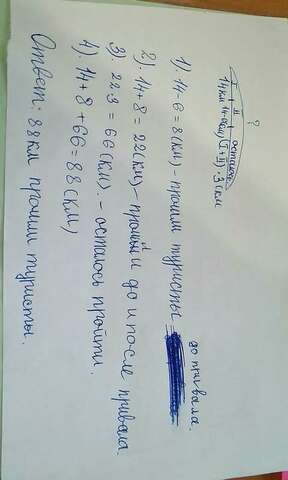 ?
I + II + осталось
14 км 14-6(км) (I+II)·3 (км)
1). 14-6=8(км) - прошли туристы
до привала.
2). 14+8=22(км) - прошли и до и после привала
3). 22·3=66(км). - осталось пройти.
4). 14+8+66=88(км)
Ответ: 88км прошли туристы.